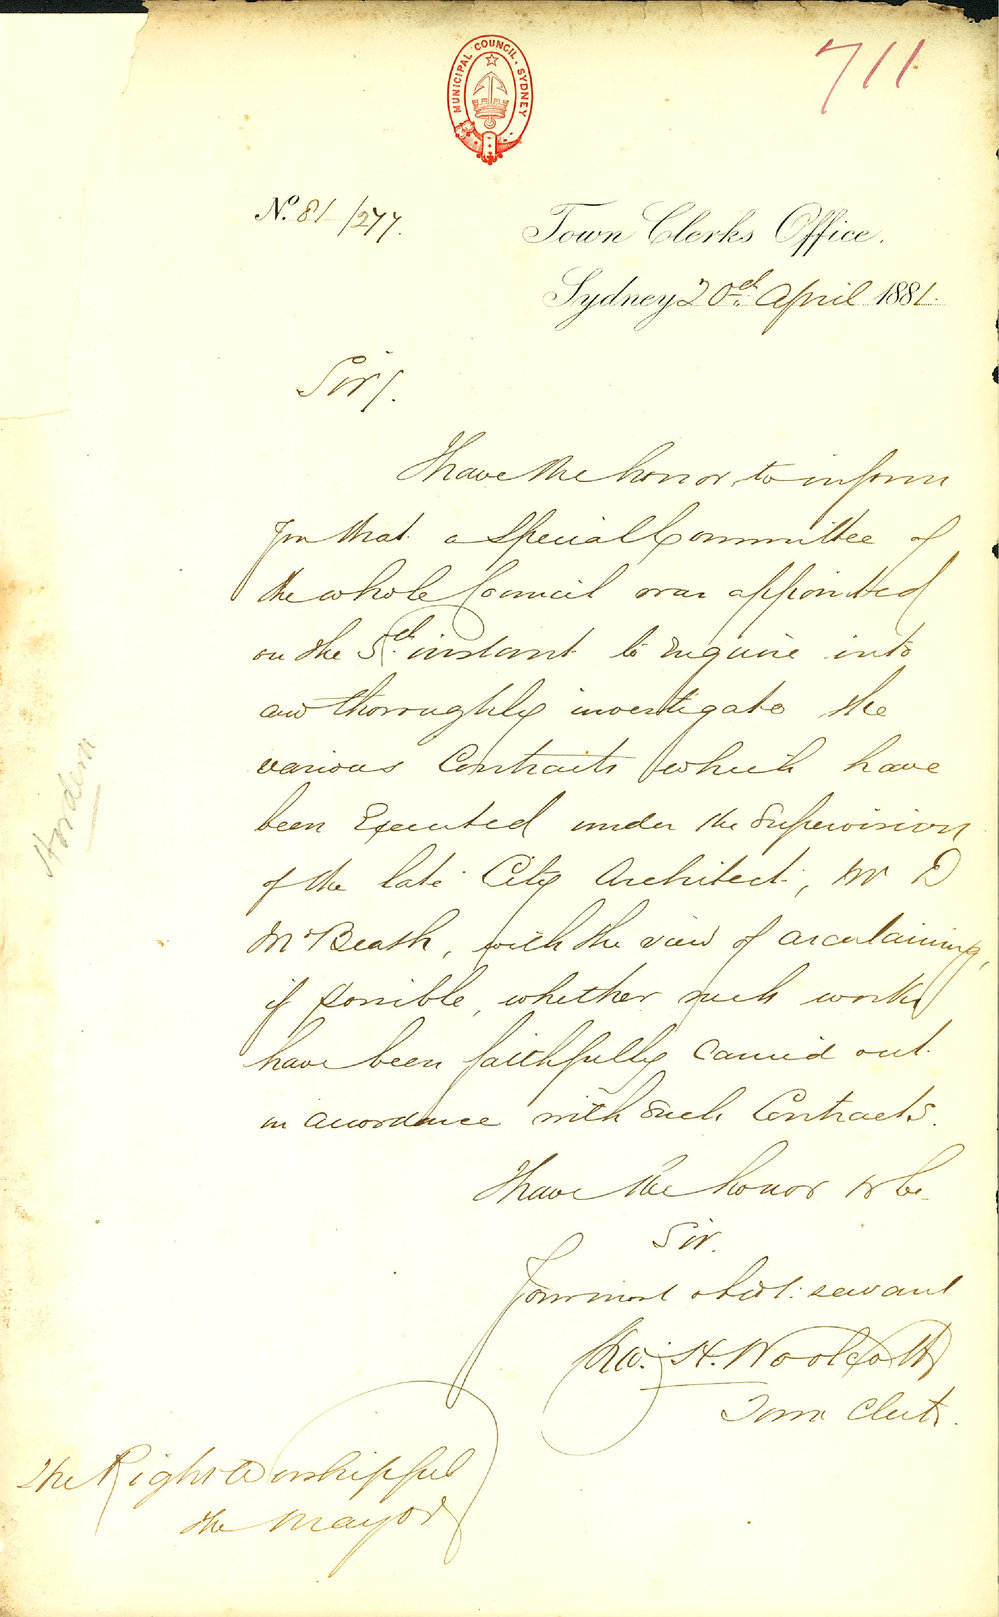 711
MUNICIPAL COUNCIL · SYDNEY
No. 81/277.
Town Clerks Office.
Sydney 20th April 1881.
Sir/.
I have the honor to inform
you that a Special Committee of
the whole Council was appointed
on the 5th instant to enquire into
and thoroughly investigate the
various Contracts which have
been Executed under the Supervision
of the late City Architect, Mr D
McBeath, with the view of ascertaining,
if possible, whether such works
have been faithfully carried out
in accordance with such Contracts.
I have the honor to be
Sir.
Your most obdt: servant
Chas. H. Woolcott
Town Clerk.
The Right Worshipful
the Mayor
Hordern